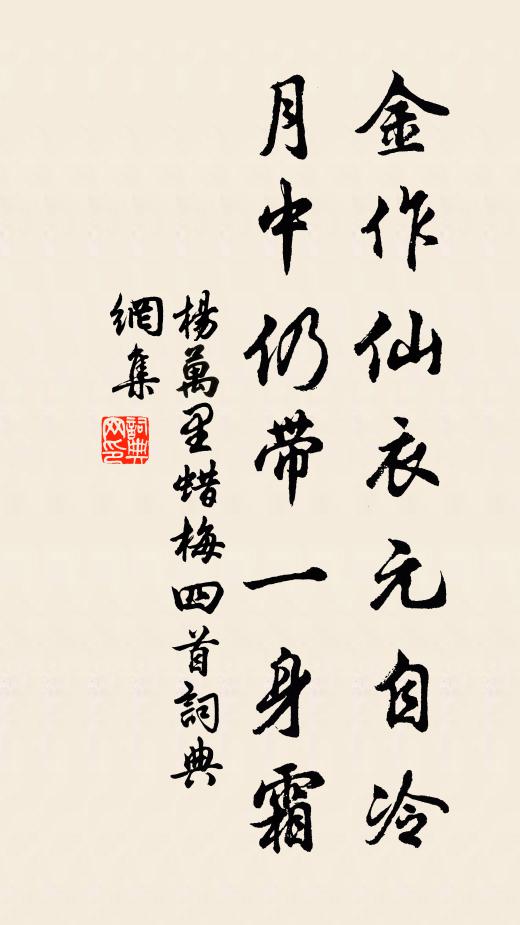 金作仙衣元自冷
月中仍带一身霜
楊萬里蜡梅四首詞典
網集
詞典網印